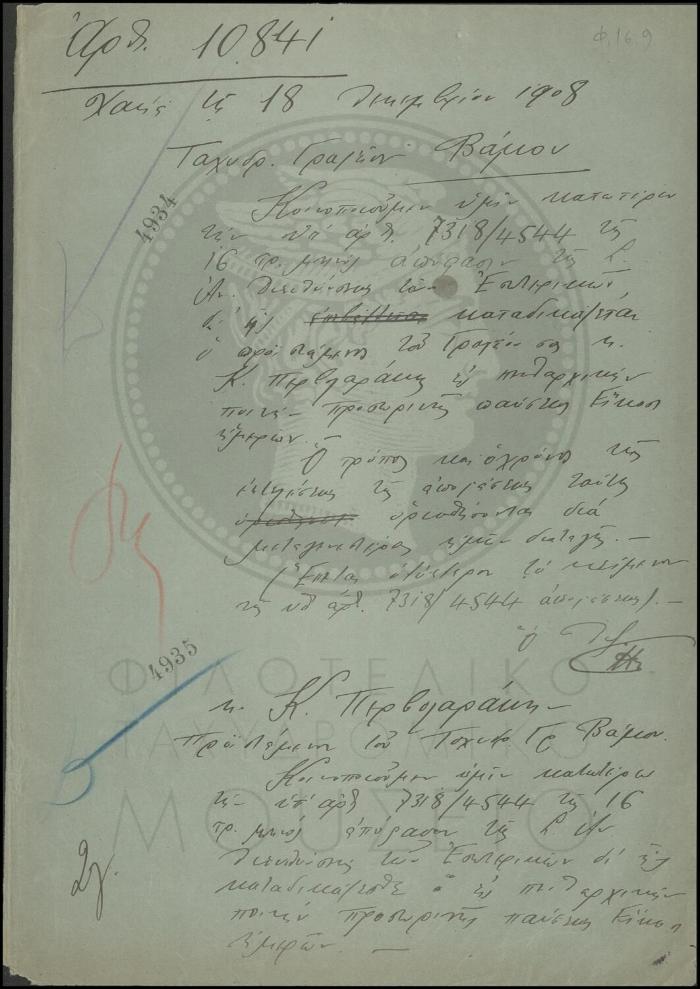 Ἀρθ. 10841
Φ.16.9
Χανιά τῇ 18 Δεκεμβρίου 1908
Ταχυδρ. Γραφεῖον Βάμου
4934
Κοινοποιοῦμεν ὑμῖν κατωτέρω
τὴν ὑπ' ἀρθ. 7318/4544 τῆς
16 τρ. μηνός ἀπόφασιν τῆς Σ.
Ἀν. Διευθύνσεως τῶν Ἐσωτερικῶν
δι' ἧς καταδικάζεται
ὁ προϊστάμενος τοῦ Γραφείου σας κ.
Κ. Περβολαράκης εἰς πειθαρχικήν
ποινήν προσωρινῆς παύσεως Εἴκοσι
ἡμερῶν.
Ὁ τρόπος καὶ ὁ χρόνος τῆς
ἐκτελέσεως τῆς ἀποφάσεως ταύτης
ὁρισθήσονται διά
μεταγενεστέρας ἡμῶν διαταγῆς. —
(Ἕπεται τό κείμενον
τῆς ὑπ' ἀρθ. 7318/4544 ἀποφάσεως). —
Ὁ
4935
κ. Κ. Περβολαράκην
Προϊστάμενον τοῦ Ταχυδρ Γρ. Βάμου.
Κοινοποιοῦμεν ὑμῖν κατωτέρω
τήν ὑπ' ἀρθ 7318/4544 τῆς 16
τρ. μηνός ἀπόφασιν τῆς Σ Ἀν
Διευθύνσεως τῶν Ἐσωτερικῶν δι' ἧς
καταδικάζεσθε εἰς πειθαρχικήν
ποινήν προσωρινῆς παύσεως Εἴκοσι
ἡμερῶν. —
ΦΙΛΟΤΕΛΙΚΟ
ΤΑΧΥΔΡΟΜΙΚΟ
ΜΟΥΣΕΙΟ